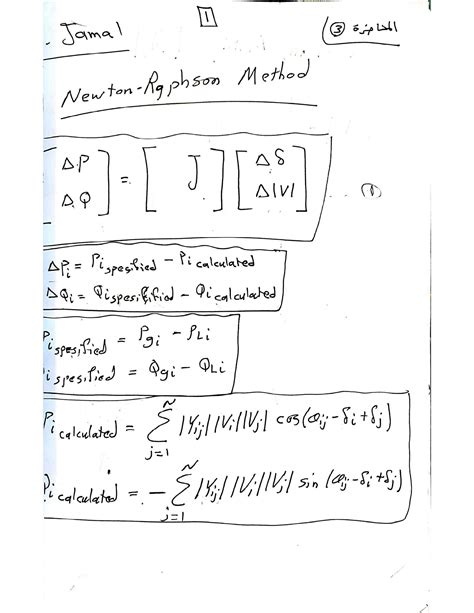 1
- Jamal
المحاضرة ③
Newton-Raphson Method
[ΔP ΔQ] = [ J ] [Δδ Δ|V|] ①
ΔPi = Pi spesified - Pi calculated
ΔQi = Qi spesified - Qi calculated
Pi spesified = Pgi - PLi
i spesified = Qgi - QLi
Pi calculated = Σ N j=1 |Yij| |Vi| |Vj| cos(θij - δi + δj)
Qi calculated = - Σ N j=1 |Yij| |Vi| |Vj| sin(θij - δi + δj)